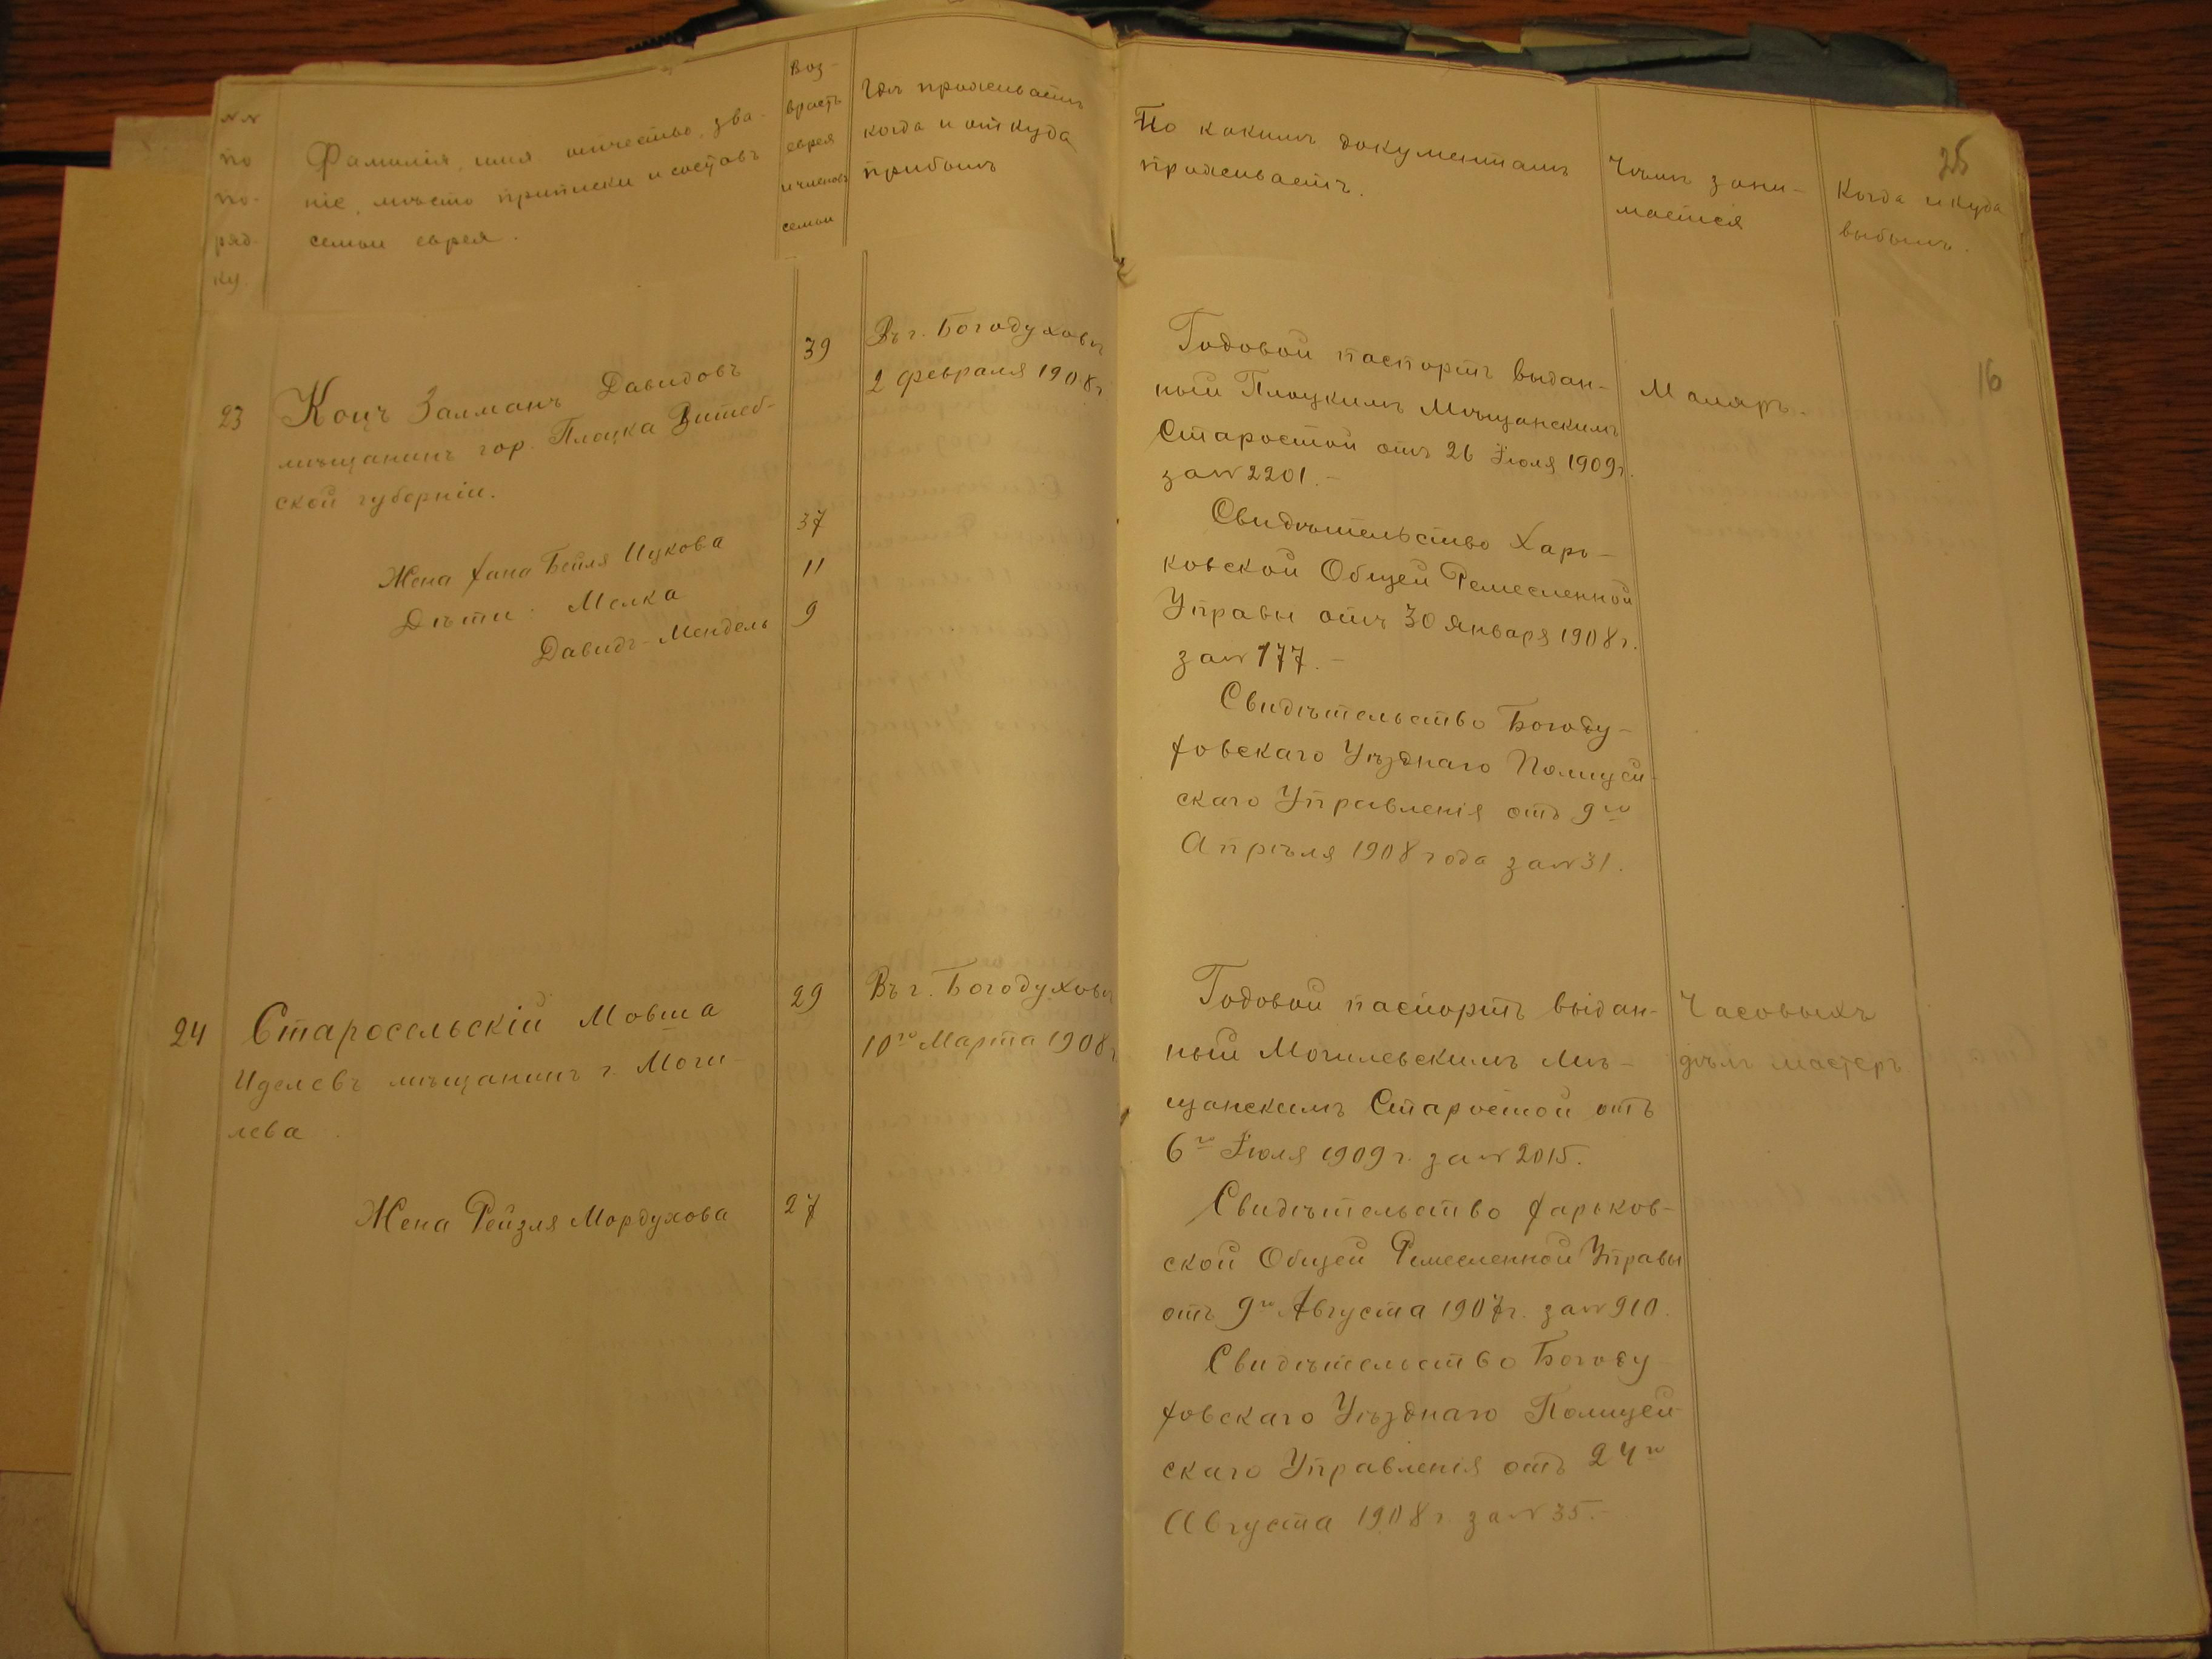 №№
по
по-
ряд-
ку.
Фамилія, имя отчество, зва-
ніе, мѣсто приписки и составъ
семьи еврея.
Воз-
врастъ
еврея
и членовъ
семьи
Гдѣ проживаетъ
когда и откуда
прибылъ
По какимъ документамъ
проживаетъ.
Чѣмъ зани-
мается
Когда и куда
выбылъ.
25
16
23
Коцъ Залманъ Давидовъ
мѣщанинъ гор. Плоцка Витеб-
ской губерніи.
Жена Хана Бейля Ицкова
Дѣти: Малка
Давидъ-Мендель
39
37
11
9
Въ г. Богодуховѣ
2 февраля 1908 г
Годовой паспортъ выдан-
ный Плоцкимъ Мѣщанскимъ
Старостой отъ 26 Іюля 1909г.
за № 2201.-
Свидѣтельство Харь-
ковской Общей Ремесленной
Управы отъ 30 Января 1908 г.
за № 177.-
Свидѣтельство Богоду-
ховскаго Уѣзднаго Полицей-
скаго Управленія отъ 9го
Апрѣля 1908 года за № 31.
Маляръ.
24
Старосельскій Мовша
Иделевъ мѣщанинъ г. Моги-
лева.
Жена Рейзля Мордухова
29
27
Въ г. Богодуховѣ
10го Марта 1908 г
Годовой паспортъ выдан-
ный Могилевскимъ Мѣ-
щанскимъ Старостой отъ
6го Іюля 1909 г. за № 2015.
Свидѣтельство Харьков-
ской Общей Ремесленной Управы
отъ 9го Августа 1907г. за № 910.
Свидѣтельство Богоду
ховскаго Уѣзднаго Полицей-
скаго Управленія отъ 24го
Августа 1908 г. за № 35.-
Часовыхъ
дѣлъ мастеръ